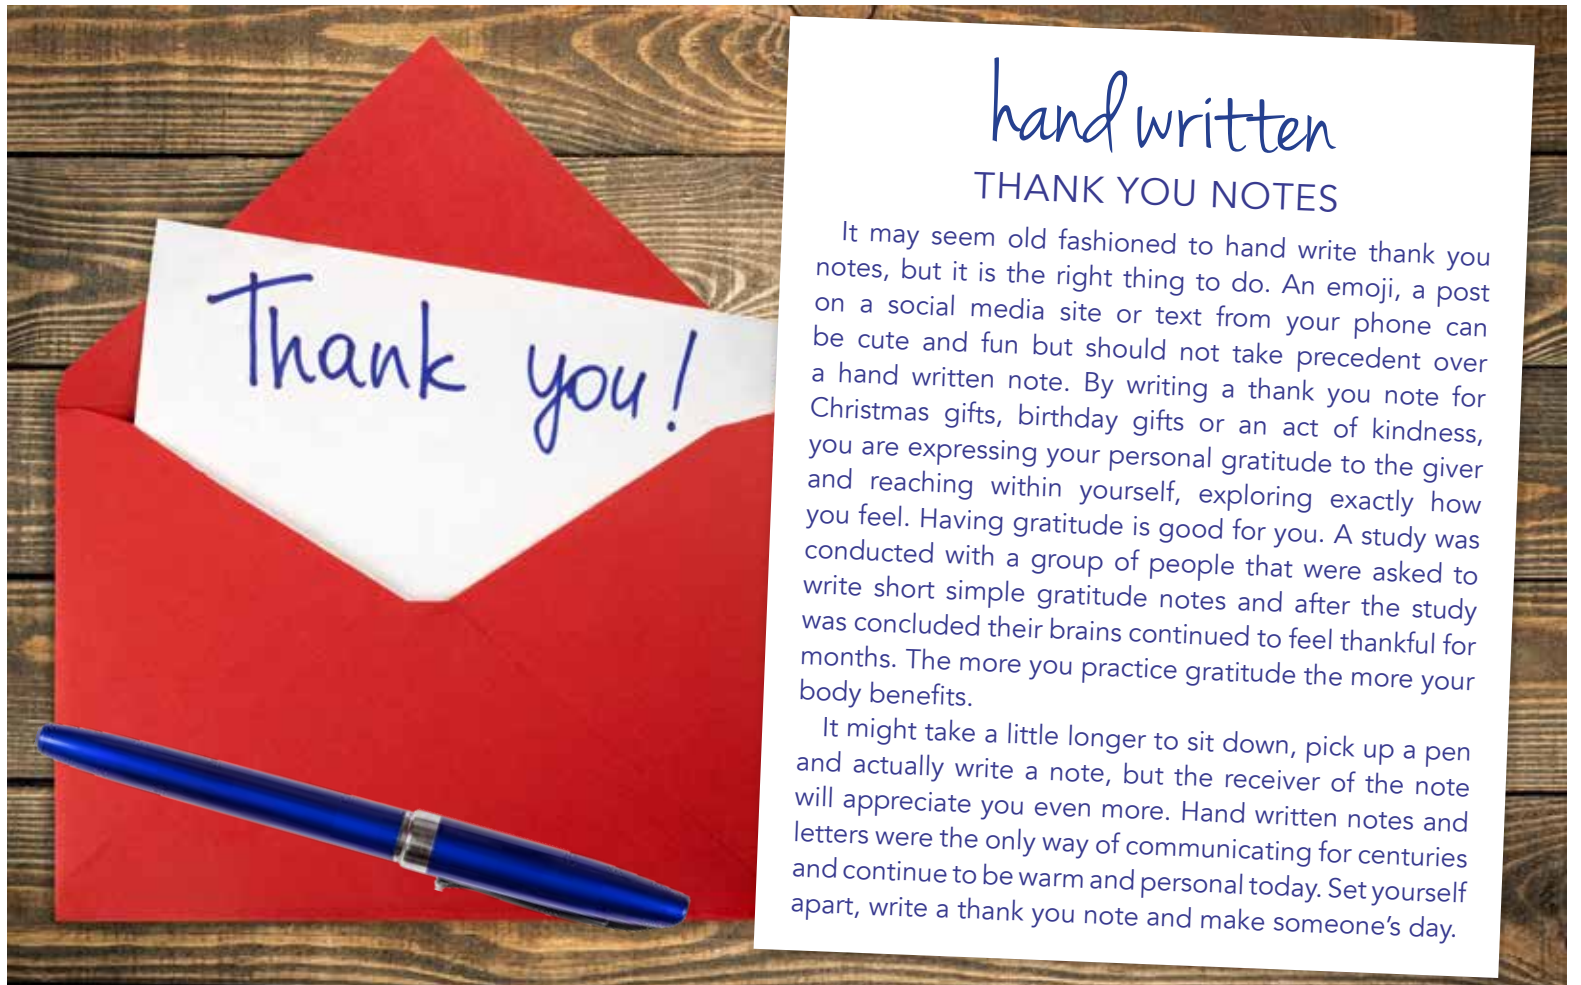 Thank you!
hand written
THANK YOU NOTES
It may seem old fashioned to hand write thank you
notes, but it is the right thing to do. An emoji, a post
on a social media site or text from your phone can
be cute and fun but should not take precedent over
a hand written note. By writing a thank you note for
Christmas gifts, birthday gifts or an act of kindness,
you are expressing your personal gratitude to the giver
and reaching within yourself, exploring exactly how
you feel. Having gratitude is good for you. A study was
conducted with a group of people that were asked to
write short simple gratitude notes and after the study
was concluded their brains continued to feel thankful for
months. The more you practice gratitude the more your
body benefits.
It might take a little longer to sit down, pick up a pen
and actually write a note, but the receiver of the note
will appreciate you even more. Hand written notes and
letters were the only way of communicating for centuries
and continue to be warm and personal today. Set yourself
apart, write a thank you note and make someone’s day.